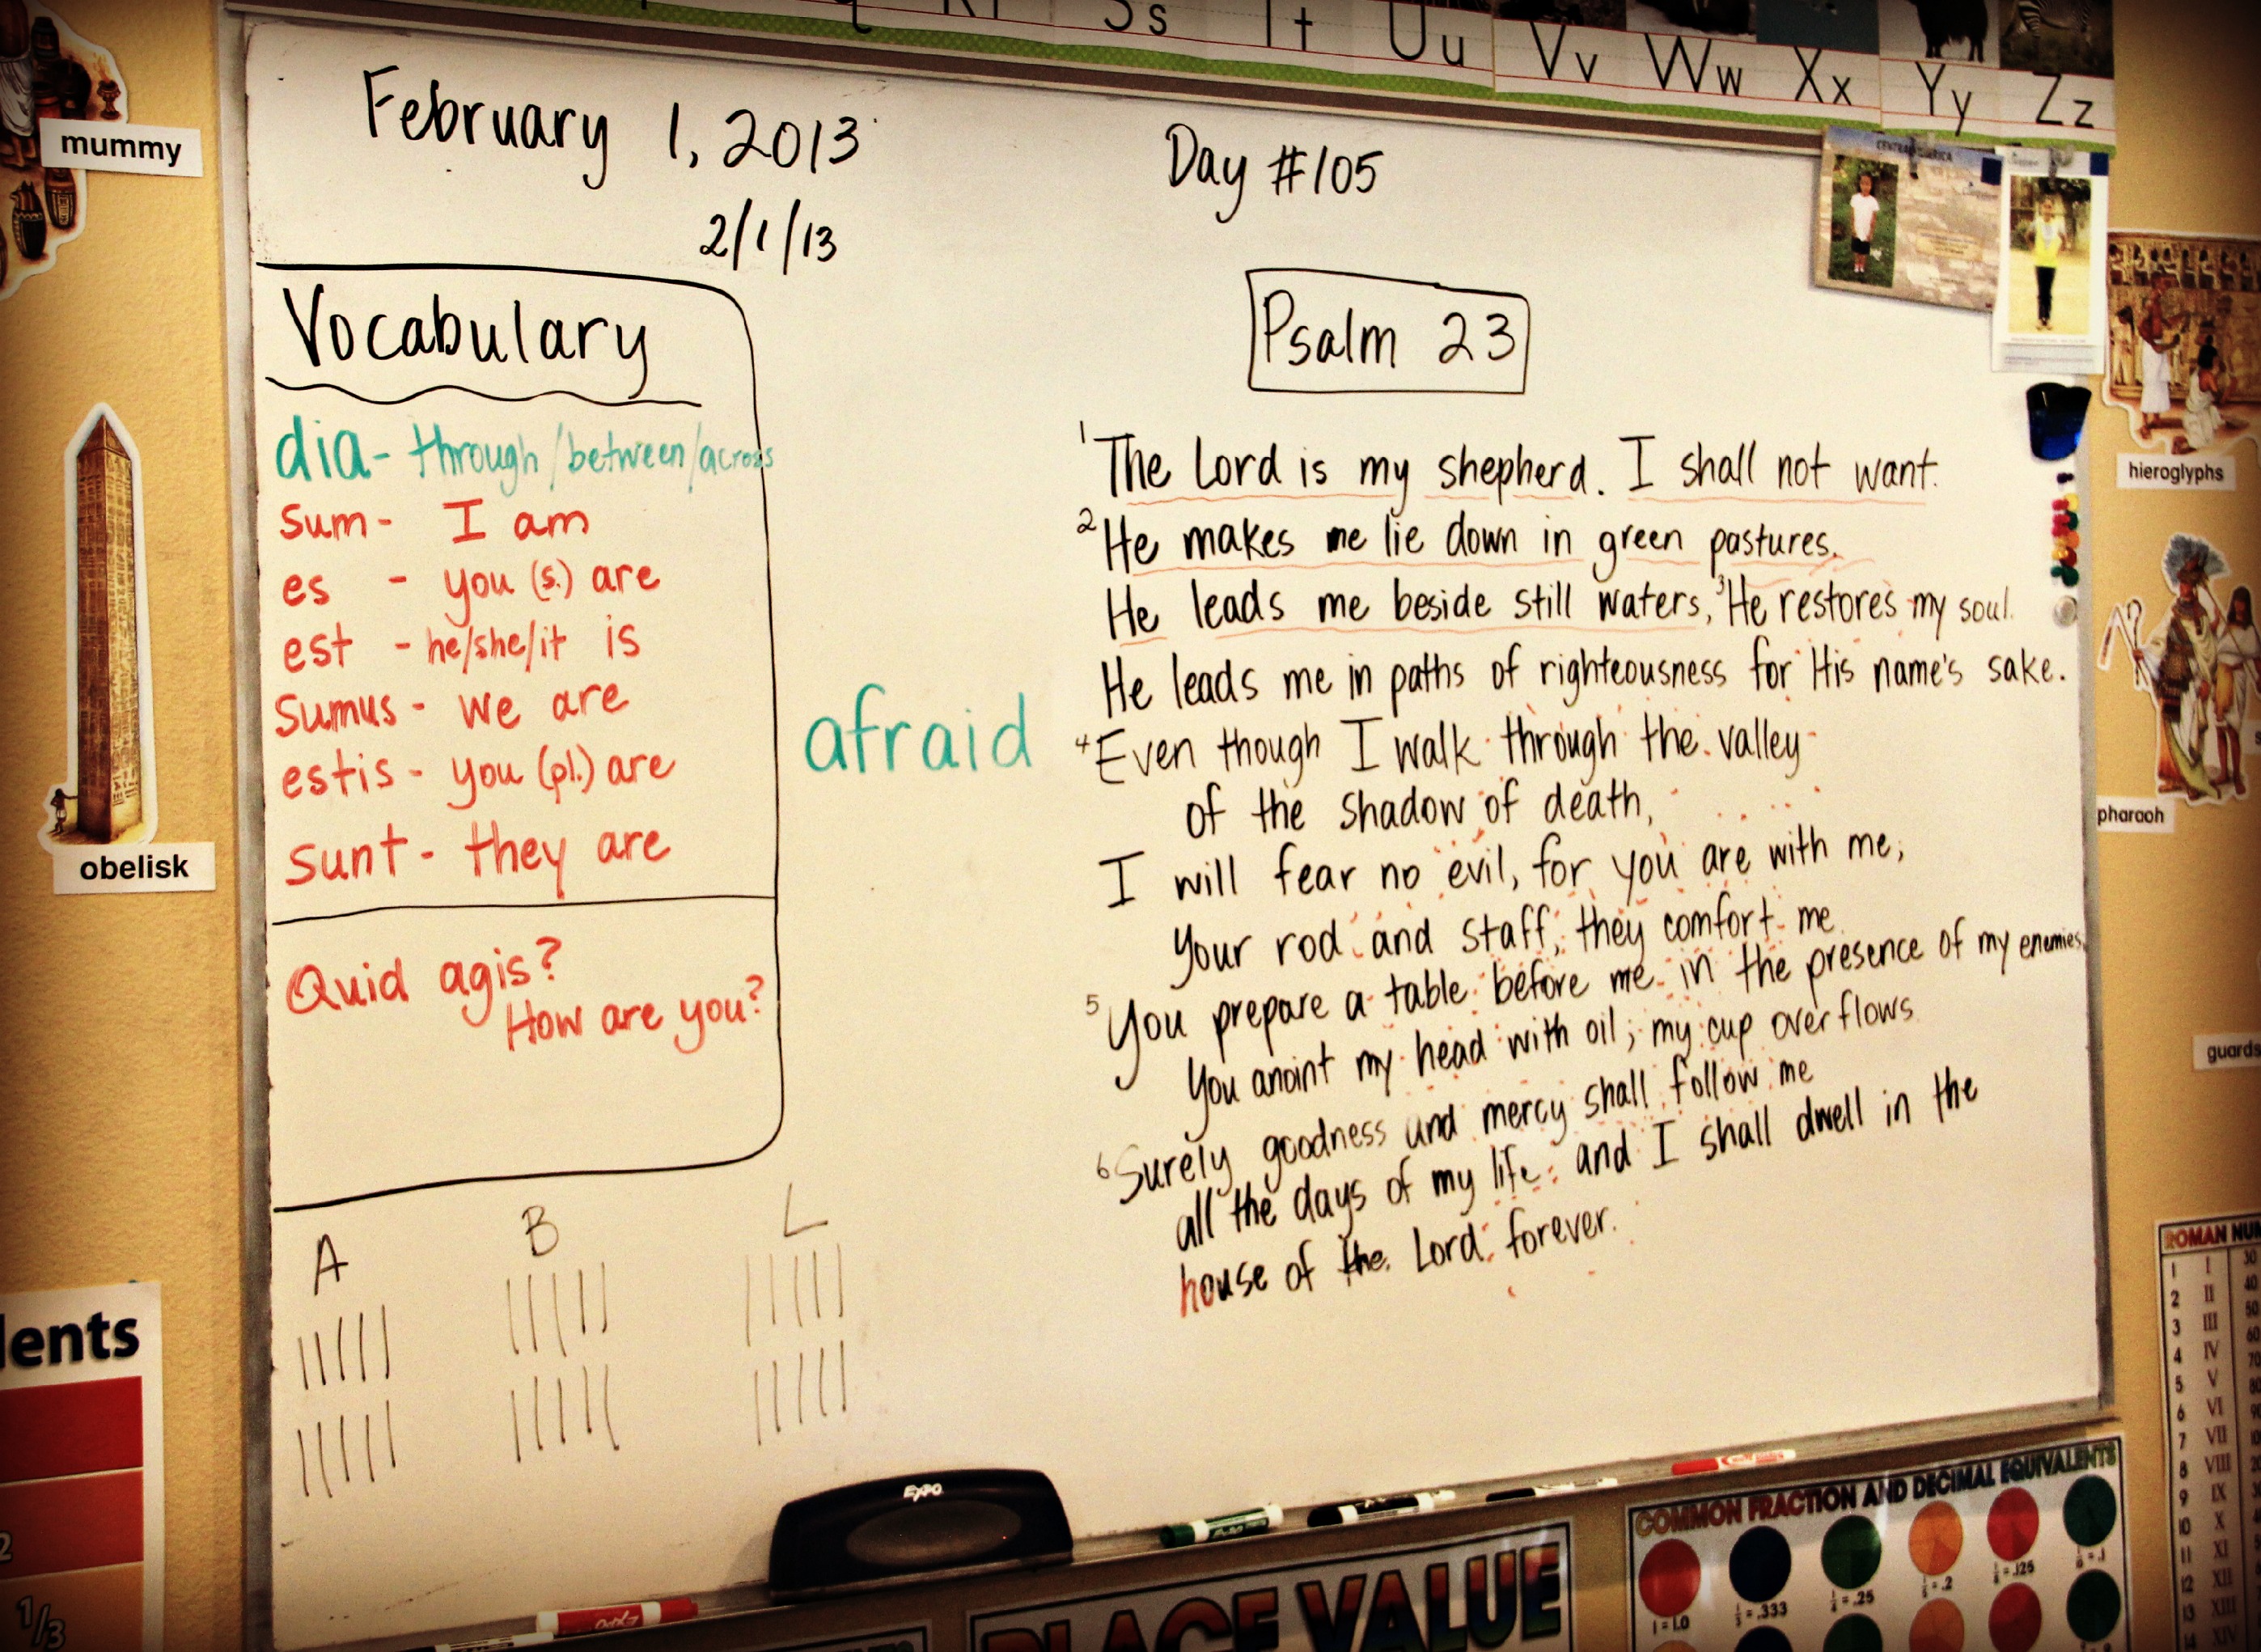 Ss Tt Uu Vv Ww Xx Yy Zz
mummy
obelisk
February 1, 2013
2/1/13
Day #105
Vocabulary
dia- through/between/across
sum- I am
es - you (s.) are
est - he/she/it is
sumus - we are
estis - you (pl.) are
sunt - they are
Quid agis?
How are you?
A B L
afraid
Psalm 23
1 The Lord is my shepherd. I shall not want.
2 He makes me lie down in green pastures.
He leads me beside still waters, 3 He restores my soul.
He leads me in paths of righteousness for His name's sake.
4 Even though I walk through the valley
of the shadow of death,
I will fear no evil, for you are with me;
your rod and staff, they comfort me
5 You prepare a table before me in the presence of my enemies.
You anoint my head with oil; my cup overflows
6 Surely goodness and mercy shall follow me
all the days of my life, and I shall dwell in the
house of the Lord forever.
hieroglyphs
pharaoh
guards
ROMAN NU
1 I 30
2 II 40
3 III 50
4 IV 70
5 V
6 VI
7 VII
8 VIII
9 IX
10 X
11 XI
12 XII
13 XIII
14 XIV
lents
1/3
EXPO
EXPO
PLACE VALUE
COMMON FRACTION AND DECIMAL EQUIVALENTS
1 = 1.0
1/3 = .333
1/4 = .25
1/5 = .2
1/8 = .125